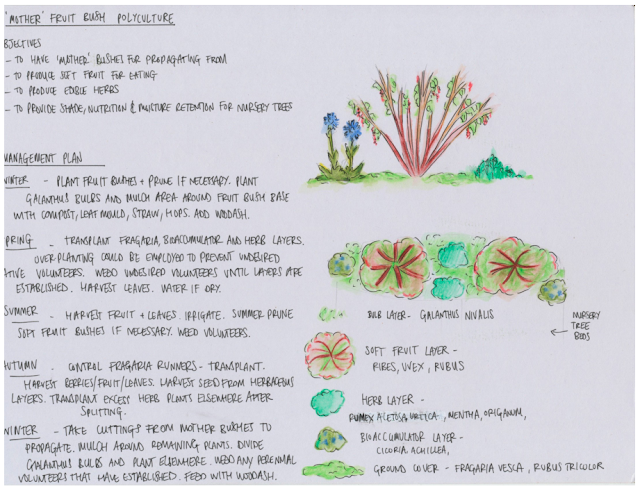 'MOTHER' FRUIT BUSH POLYCULTURE
BJECTIVES
- TO HAVE 'MOTHER' BUSHES FOR PROPAGATING FROM
- TO PRODUCE SOFT FRUIT FOR EATING
- TO PRODUCE EDIBLE HERBS
- TO PROVIDE SHADE, NUTRITION & MOISTURE RETENTION FOR NURSERY TREES
MANAGEMENT PLAN
WINTER - PLANT FRUIT BUSHES + PRUNE IF NECESSARY. PLANT
GALANTHUS BULBS AND MULCH AREA AROUND FRUIT BUSH BASE
WITH COMPOST, LEAF MOULD, STRAW, HOPS. AND WOODASH.
PRING - TRANSPLANT FRAGARIA, BIOACCUMULATOR AND HERB LAYERS.
OVER PLANTING COULD BE EMPLOYED TO PREVENT UNDESIRED
ATIVE VOLUNTEERS. WEED UNDESIRED VOLUNTEERS UNTIL LAYERS ARE
ESTABLISHED. HARVEST LEAVES. WATER IF DRY.
SUMMER - HARVEST FRUIT + LEAVES. IRRIGATE. SUMMER PRUNE
SOFT FRUIT BUSHES IF NECESSARY. WEED VOLUNTEERS.
AUTUMN - CONTROL FRAGARIA RUNNERS - TRANSPLANT.
HARVEST BERRIES/FRUIT/LEAVES. HARVEST SEED FROM HERBACEOUS
LAYERS. TRANSPLANT EXCESS HERB PLANTS ELSEWHERE AFTER
SPLITTING.
WINTER - TAKE CUTTINGS FROM MOTHER BUSHES TO
PROPAGATE. MULCH AROUND REMAINING PLANTS. DIVIDE
GALANTHUS BULBS AND PLANT ELSEWHERE. WEED ANY PERENNIAL
VOLUNTEERS THAT HAVE ESTABLISHED. FEED WITH WOODASH.
BULB LAYER - GALANTHUS NIVALIS
NURSERY
TREE
BEDS
SOFT FRUIT LAYER -
RIBES, UVEX, RUBUS
HERB LAYER -
RUMEX ACETOSA, URTICA, MENTHA, ORIGANUM,
BIOACCUMULATOR LAYER -
CICORIA, ACHILLEA,
GROUND COVER - FRAGARIA VESCA, RUBUS TRICOLOR